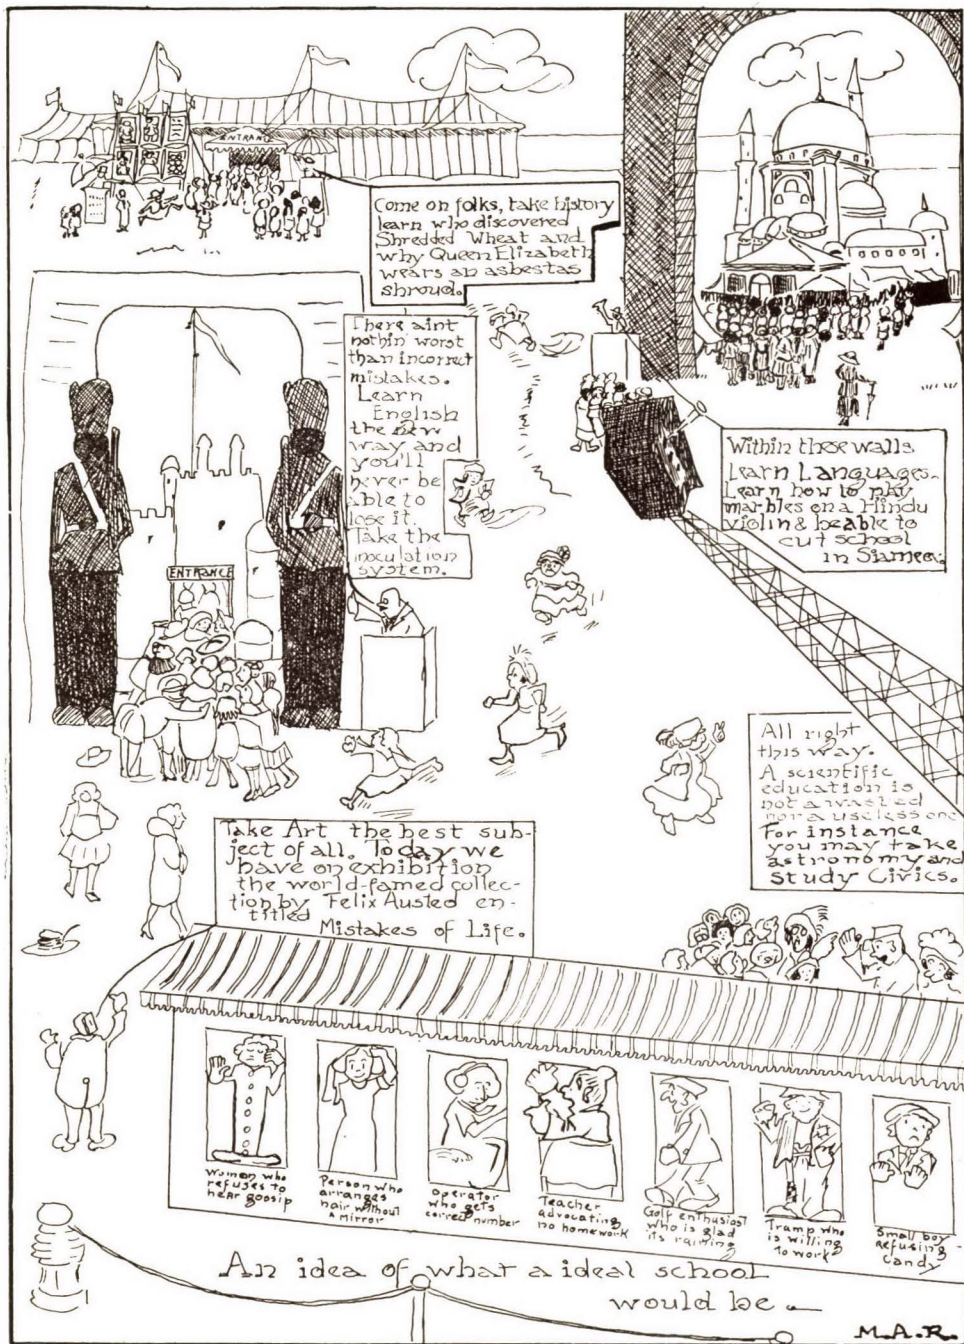 ENTRANC
Come on folks, take history
learn who discovered
Shredded Wheat and
why Queen Elizabeth
wears an asbestas
shroud.
There aint
nothin' worst
than incorrect
mistakes.
Learn
English
the new
way and
you'll
never be
able to
lose it.
Take the
inoculation
system.
ENTRANCE
Within these walls
Learn Languages.
Learn how to play
marbles on a Hindu
violin & be able to
cut school
in Siamee.
All right
this way.
A scientific
education is
not a wasted
nor a useless one
For instance
you may take
astronomy and
study Civics.
Take Art the best sub-
ject of all. Today we
have on exhibition
the world-famed collec-
tion by Felix Austed en-
titled
Mistakes of Life.
Woman who
refuses to
hear gossip
Person who
arranges
hair without
a mirror
Operator
who gets
correct number
Teacher
advocating
no homework
Golf enthusiast
who is glad
its raining
Tramp who
is willing
to work
Small boy
refusing
candy
An idea of what a ideal school
would be.
M.A.R.